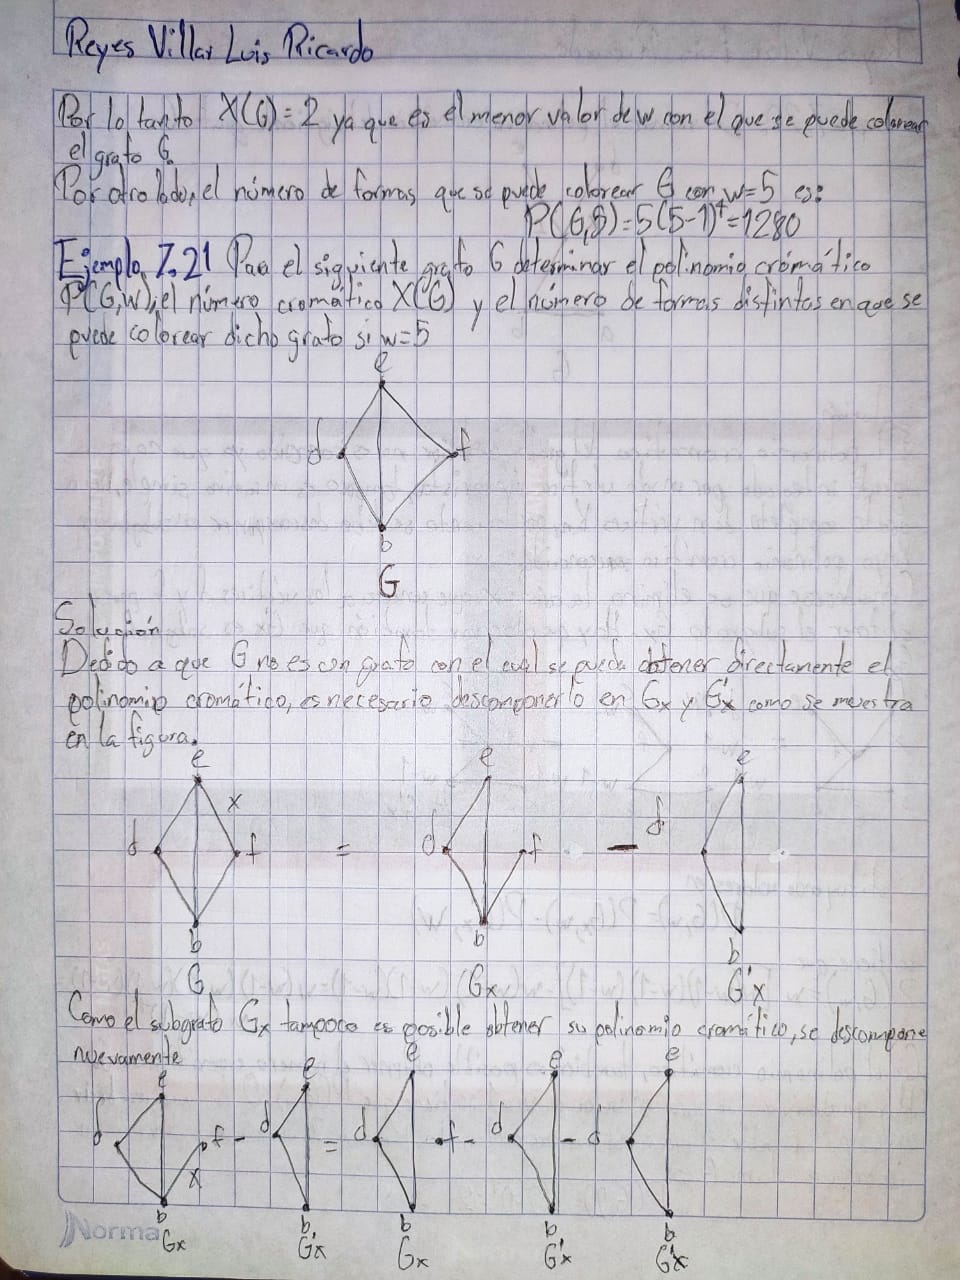 Reyes Villar Luis Ricardo
Por lo tanto X(G)=2 ya que es el menor valor de w con el que se puede colorear
el grafo G.
Por otro lado, el número de formas que se puede colorear G con w=5 es:
P(G,5)=5(5-1)⁴=1280
Ejemplo 7.21 Para el siguiente grafo G determinar el polinomio cromático
P(G,w), el número cromático X(G) y el número de formas distintas en que se
puede colorear dicho grafo si w=5
e
d f
b
G
Solución
Debido a que G no es un grafo con el cual se pueda obtener directamente el
polinomio cromático, es necesario descomponerlo en Gx y G'x como se muestra
en la figura.
e e e
x
d f = d f - d
b b b
G Gx G'x
Como el subgrafo Gx tampoco es posible obtener su polinomio cromático, se descompone
nuevamente
e e e e e
d f - d = d f - d - d
x
b b b b b
Gx G'x Gx G'x G'x
Norma